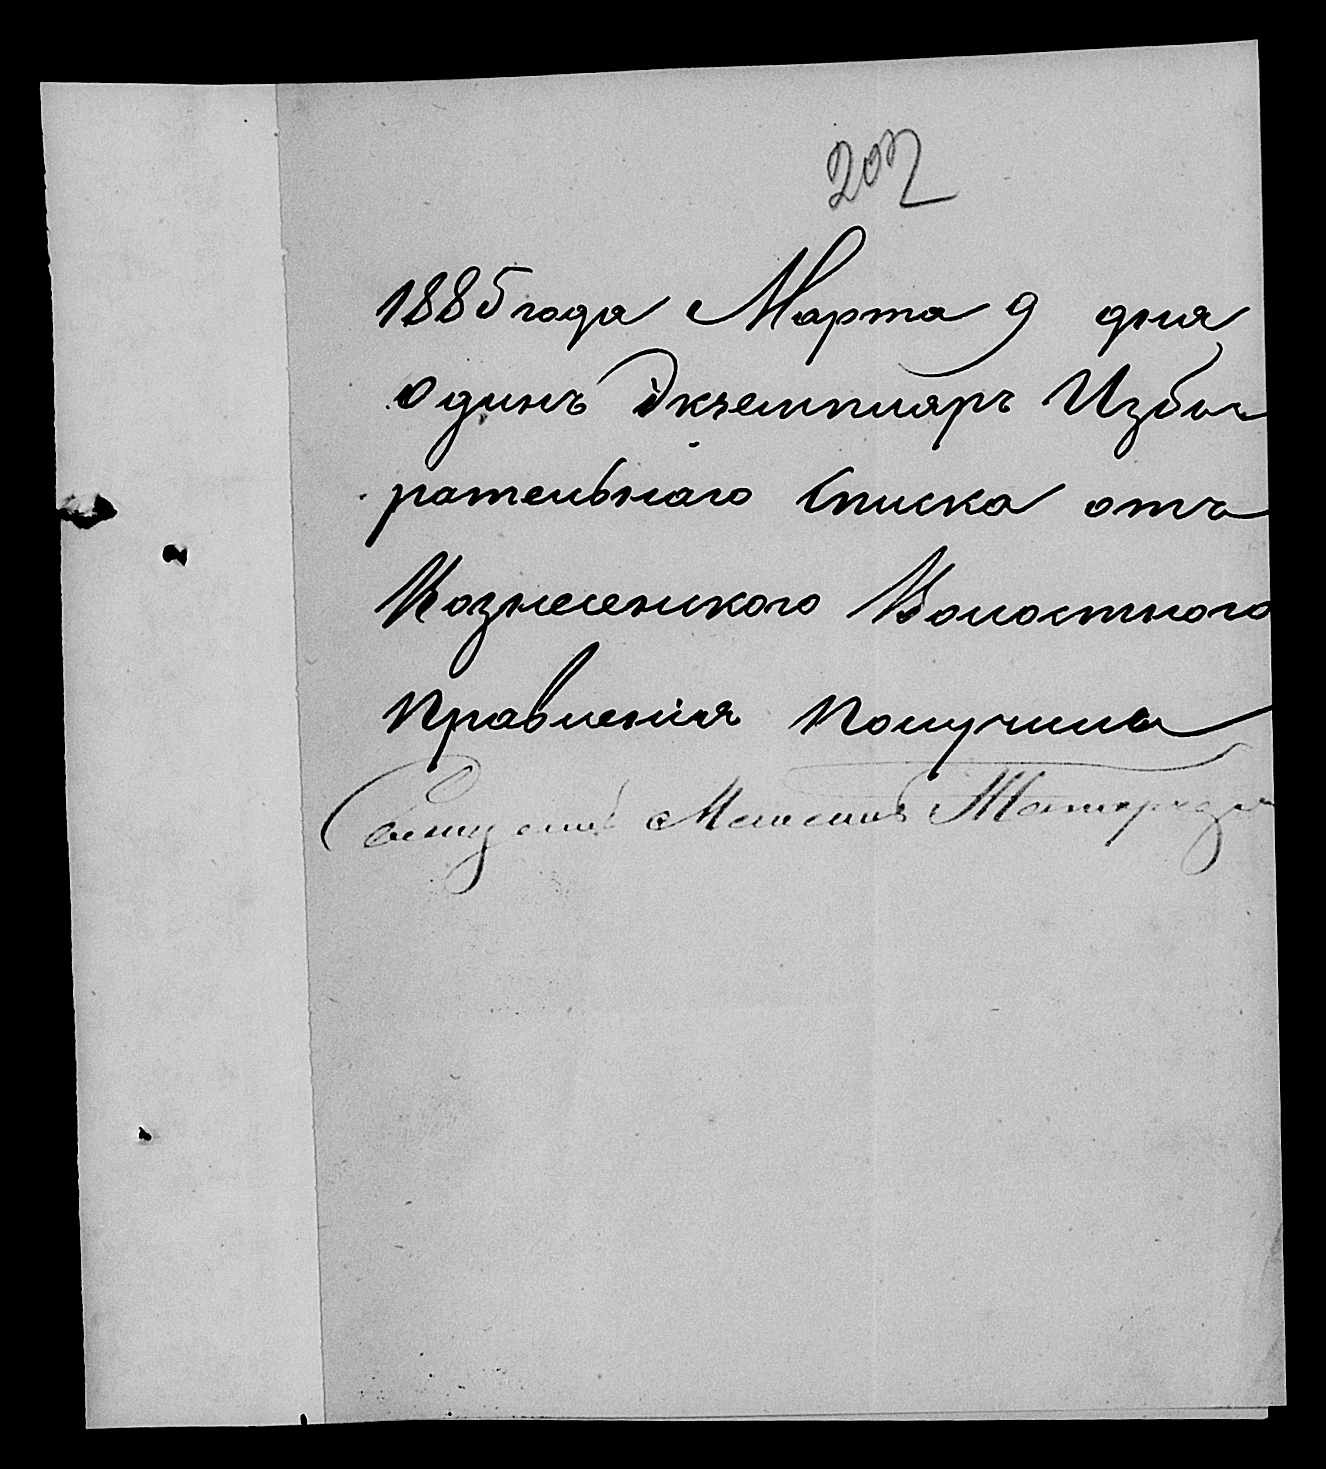 202
1885 года Марта 9 дня
Одинъ Экземпляръ Изби
рательнаго Списка отъ
Вознесенского Волостного
Правленія Получилъ